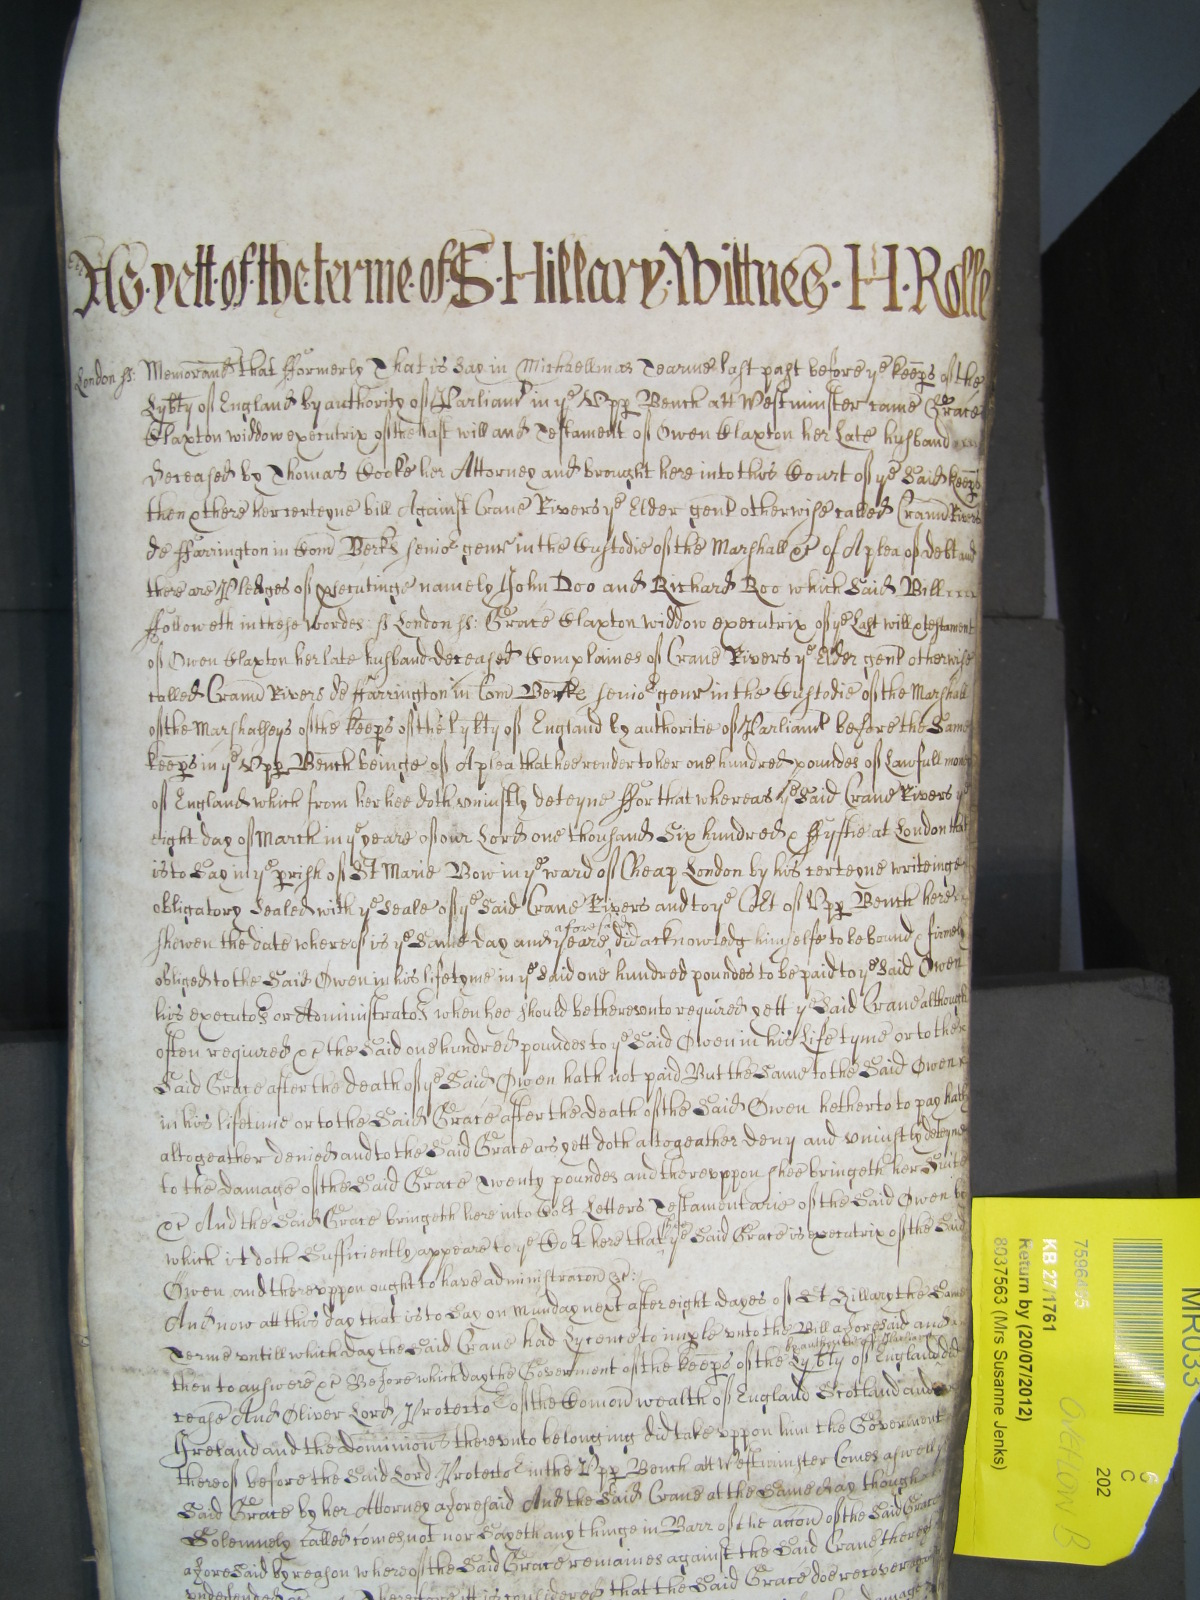 As yett of the terme of S Hillary Wittnes H Rolle
London ss: Memorand that fformerly That is Say in Michaellmas Tearme last past before ye keeps of the
Lybty of England by authority of Parliamt in ye Vpp Bench att Westminster came Grace
Claxton widdow executrix of the last will and Testament of Owen Claxton her late husband
deceased by Thomas Cooke her Attorney and brought here into this Court of ye Said keeps
then & there her certeyne bill Against Crane Rivers ye Elder gent otherwise called Crann Rivers
de ffarrington in Com Berks senior gener in the Custodie of the Marshall &c of A plea of debt and
there are Pledges of psecutinge namely John Doo and Richard Roo which Said Bill
ffolloweth in these wordes ss London ss: Grace Claxton widdow executrix of ye Last will & testament
of Owen Claxton her late husband deceased Complaines of Crane Rivers ye Elder gent otherwise
called Crann Rivers de ffarrington in Com Berks senior gener in the Custodie of the Marshall
of the Marshalseys of the keeps of the Lybty of England by authoritie of Parliamt before the Same
keeps in ye Vpp Bench beinge of A plea that hee render to her one hundred poundes of Lawfull money
of England which from her hee doth vniustly deteyne ffor that whereas ye Said Crane Rivers ye
eight day of March in ye yeare of our Lord one thousand Six hundred & ffyftie at London that
is to Say in ye prish of St Marie Bow in ye ward of Cheap London by his certeyne writeinge
obligatory Sealed with ye Seale of ye Said Crane Rivers and to ye Cort of Vpp Bench here
shewen the date whereof is ye Same day and yeare aforesaid did acknowledg himselfe to be bound & firmely
obliged to the Said Owen in his lifetyme in ye Said one hundred poundes to be paid to ye Said Owen
his executors or Administrators when hee should be therevnto required yett ye Said Crane although
often required &c the Said one hundred poundes to ye Said Owen in his Life tyme or to the
Said Grace after the death of ye Said Owen hath not paid But the Same to the Said Owen
in his lifetime or to the Said Grace after the death of the Said Owen hetherto to pay hath
altogeather denied and to the Said Grace as yett doth altogeather deny and vniustly deteyne
to the damage of the Said Grace Twenty poundes and therevppon shee bringeth her Suite
&c And the Said Grace bringeth here into Cort Letters Testamentarie of the Said Owen by
which it doth Sufficiently appeare to ye Cort here that ye Said Grace is executrix of the Said
Owen and therevppon ought to have administracon &c:
And now att this day that is to Say on Munday next after eight dayes of St Hillary the Same
Terme vntill which day the Said Crane had Lycence to imple vnto the Bill aforesaid and
then to answere &c Before which day the Goverment of the keeps of the Lybty of England by authority of Parliamt did
cease And Oliver Lord Protector of the Comon wealth of England Scotland and
Ireland and the dominions therevnto belonging did take vppon him the Goverment
thereof before the Said Lord Protector in the Vpp Bench att Westminster Comes aswell ye
Said Grace by her Attorney aforesaid And the Said Crane at the Same day though
Solemnely called comes not nor Sayeth any thinge in Barr of the accon of the Said Grace
aforeSaid by reason whereof the Said Grace remaines against the Said Crane therevppon
vndefended &c Therefore itt is considered that the Said Grace doe recover
MR033
6
C
202
7596495
KB 27/1761
Return by (20/07/2012)
8037563 (Mrs Susanne Jenks)
OVERLOW B